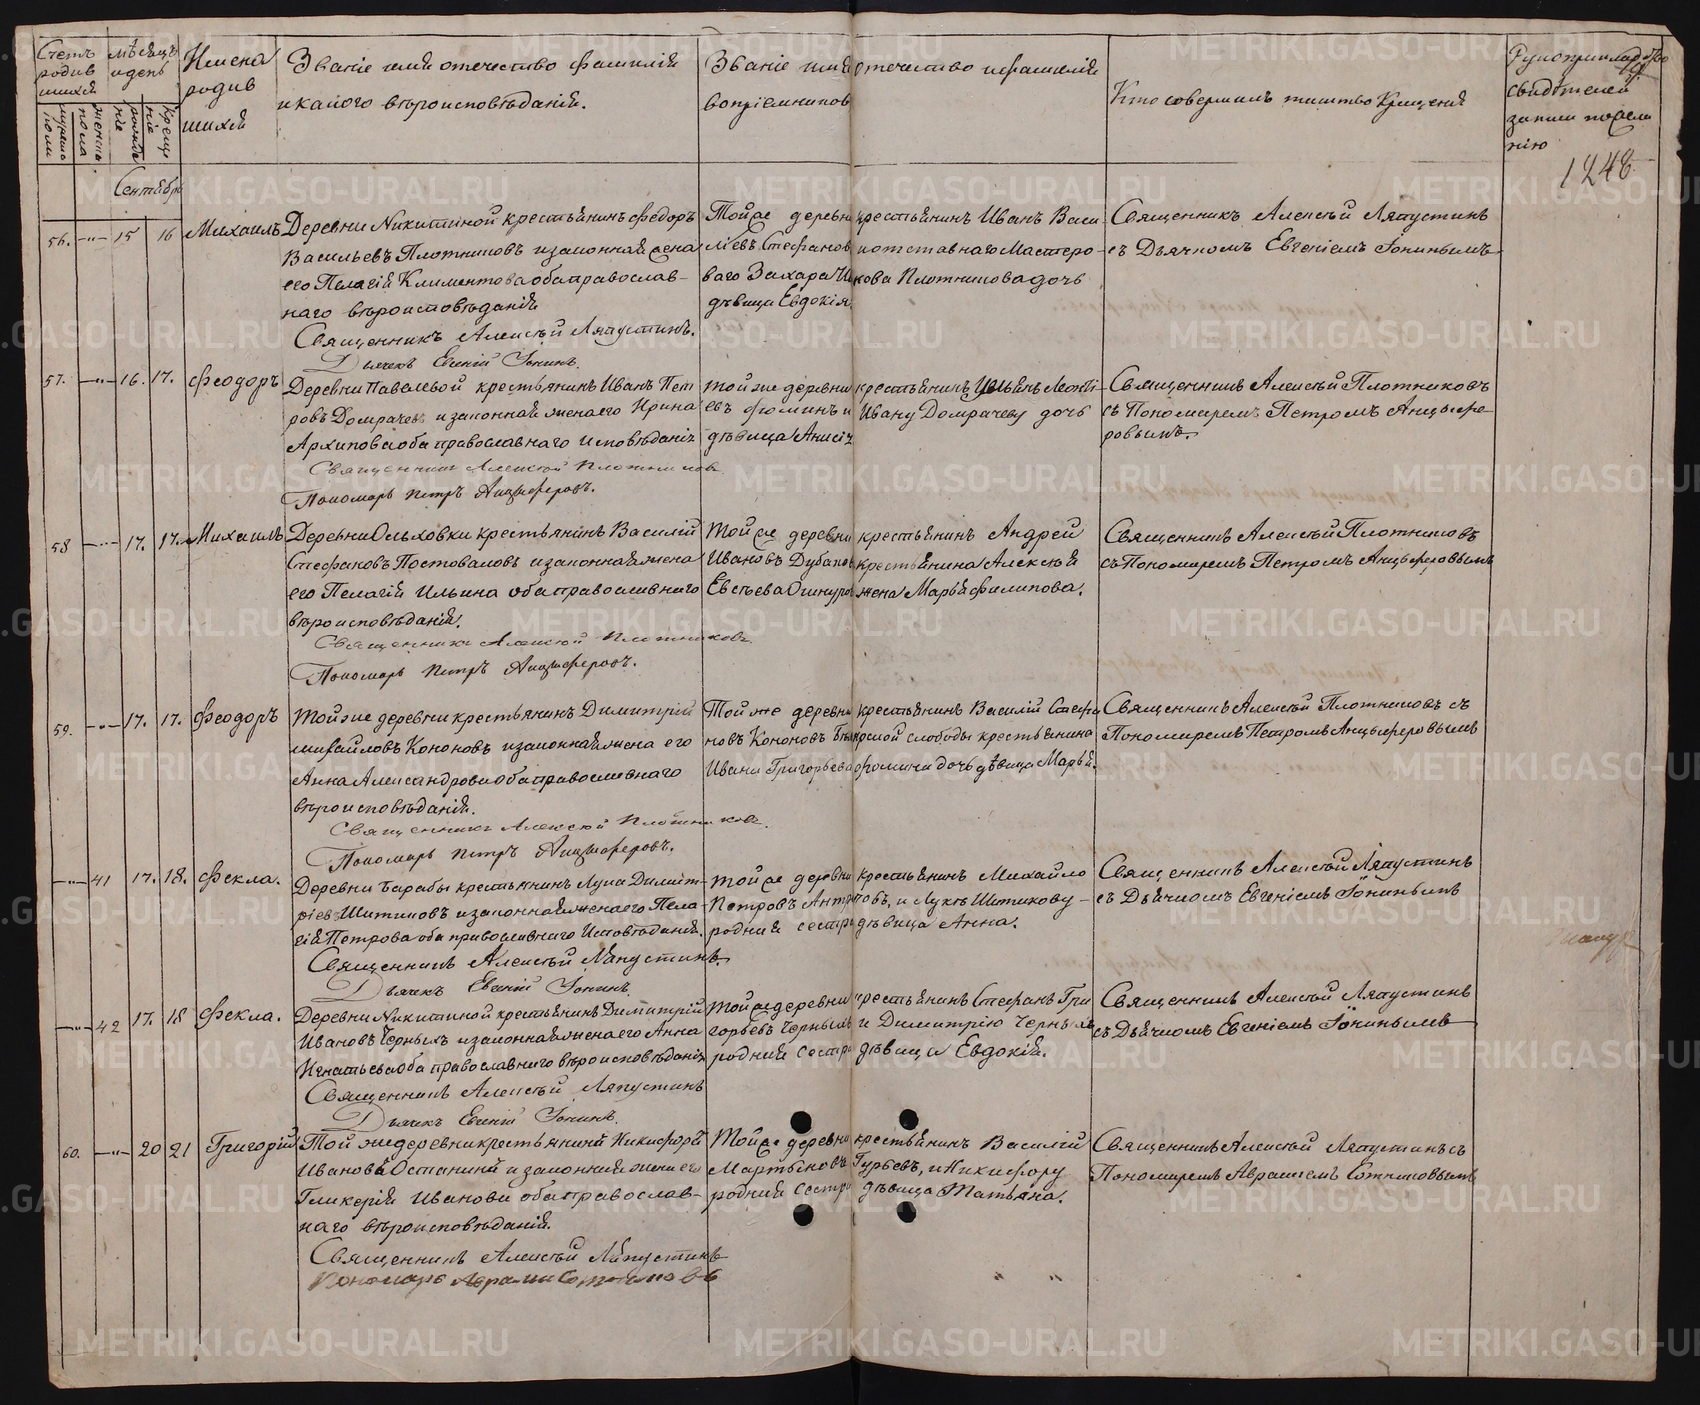 Счетъ родив шихся
мѣсяцъ и день
Имена родив шихся
Званіе имя отечество фамилія
и какого вѣроисповѣданія.
Званіе имя отечество и фамилія
воспріемниковъ
Кто совершалъ таинство Крещенія
Рукоприкладство
свидѣтелей
записи по жела
нію
1248
Сентября
56. —"— 15 16 Михаилъ
Деревни Никитиной крестьянинъ Федоръ
Васильевъ Плотниковъ и законная жена
его Пелагія Климентова оба православ-
наго вѣроисповѣданія
Священникъ Алексѣй Ляпустинъ.
Дьячекъ Евгеній Іонинъ.
Той же деревни крестьянинъ Иванъ Васи-
ліевъ Стефановъ и отставнаго Мастеро-
ваго Захара Плотникова дочь
дѣвица Евдокія
Священникъ Алексѣй Ляпустинъ
съ Дьячкомъ Евгеніемъ Іонинымъ
57. —"— 16. 17. Феодоръ
Деревни Павалевой крестьянинъ Иванъ Пет
ровъ Домрачевъ и законная жена его Ирина
Архипова оба православнаго исповѣданія
Священникъ Алексѣй Плотниковъ
Пономарь Петръ Анцыферовъ.
той же деревни крестьянинъ Леонтi-
евъ Фоминъ и Ивану Домрачеву дочь
дѣвица Анисія
Священникъ Алексѣй Плотниковъ
съ Пономаремъ Петромъ Анцыфе-
ровымъ.
58 —"— 17. 17. Михаилъ
Деревни Ольховки крестьянинъ Василій
Стефановъ Постоваловъ и законная жена
его Пелагія Ильина оба православнаго
вѣроисповѣданія.
Священникъ Алексѣй Плотниковъ
Пономарь Петръ Анцыферовъ.
Той же деревни крестьянинъ Андрей
Ивановъ Дубановъ крестьянина Алексѣя
Евстева жена Марья Филипова.
Священникъ Алексѣй Плотниковъ
съ Пономаремъ Петромъ Анцыферовымъ
59. —"— 17. 17. Феодоръ
Той же деревни крестьянинъ Димитрій
Михайловъ Кононовъ и законная жена его
Анна Александрова оба православнаго
вѣроисповѣданія.
Священникъ Алексѣй Плотниковъ.
Пономарь Петръ Анцыферовъ.
Той же деревни крестьянинъ Василій Стефа
новъ Кононовъ слободы крестьянина
Ивана Григорьева Фомина дочь дѣвица Марья.
Священникъ Алексѣй Плотниковъ съ
Пономаремъ Петромъ Анцыферовымъ
—"— 41 17. 18. Фекла.
Деревни Барабы крестьянинъ Лука Димит-
ріевъ Шитиковъ и законная жена его Пела-
гія Петрова оба православнаго Исповѣданія.
Священникъ Алексѣй Ляпустинъ.
Дьячекъ Евгеній Іонинъ.
той же деревни крестьянинъ Михайло
Петровъ и Лукѣ Шитикову -
родная сестра дѣвица Анна.
Священникъ Алексѣй Ляпустинъ
съ Дьячкомъ Евгеніемъ Іонинымъ
—"— 42 17. 18 Фекла.
Деревни Никитиной крестьянинъ Димитрій
Ивановъ Черныхъ и законная жена его Анна
Игнатьева оба православнаго вѣроисповѣданія
Священникъ Алексѣй Ляпустинъ
Дьячекъ Евгеній Іонинъ.
той же деревни крестьянинъ Стефанъ Гри
горьевъ Черныхъ и Димитрію Черныхъ
родная сестра дѣвица Евдокія.
Священникъ Алексѣй Ляпустинъ
съ Дьячкомъ Евгеніемъ Іонинымъ
60. —"— 20 21 Григорій
Той же деревни крестьянинъ Никифоръ
Ивановъ Останинъ и законная жена его
Гликерія Иванова оба православ-
наго вѣроисповѣданія.
Священникъ Алексѣй Ляпустинъ
Пономарь Авраамъ Сотниковъ
Той же деревни крестьянинъ Василій
Мартыновъ Гурьевъ, и Никифору
родная сестра дѣвица Татьяна.
Священникъ Алексѣй Ляпустинъ съ
Пономаремъ Авраамомъ Сотниковымъ
METRIKI.GASO-URAL.RU